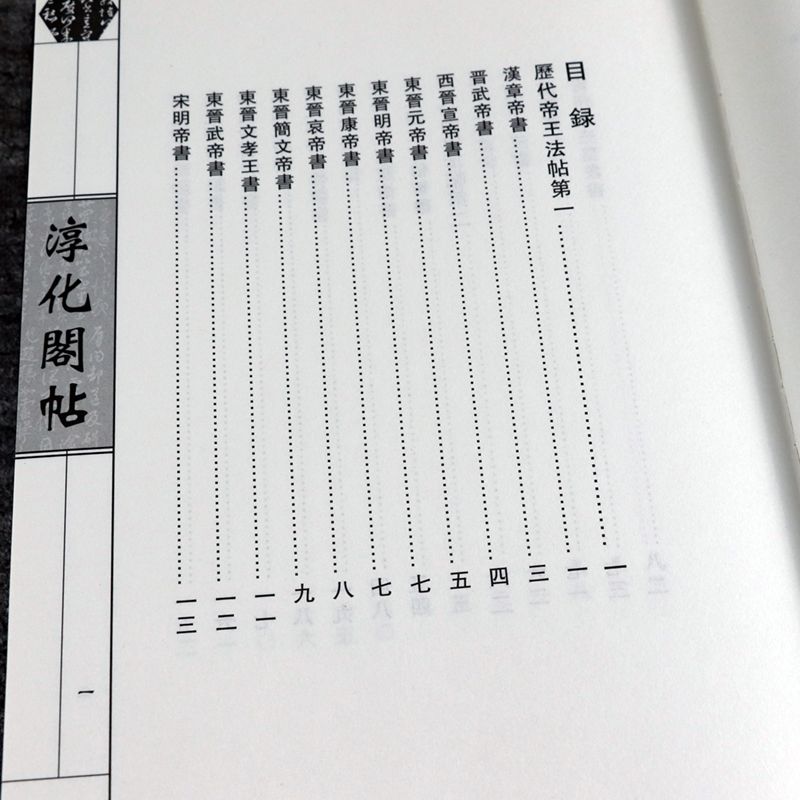 目録
歷代帝王法帖第一……一
漢章帝書……一
晉武帝書……三
西晉宣帝書……四
東晉元帝書……五
東晉明帝書……七
東晉康帝書……七
東晉哀帝書……八
東晉簡文帝書……九
東晉文孝王書……一一
東晉武帝書……一二
宋明帝書……一三
淳化閣帖
一